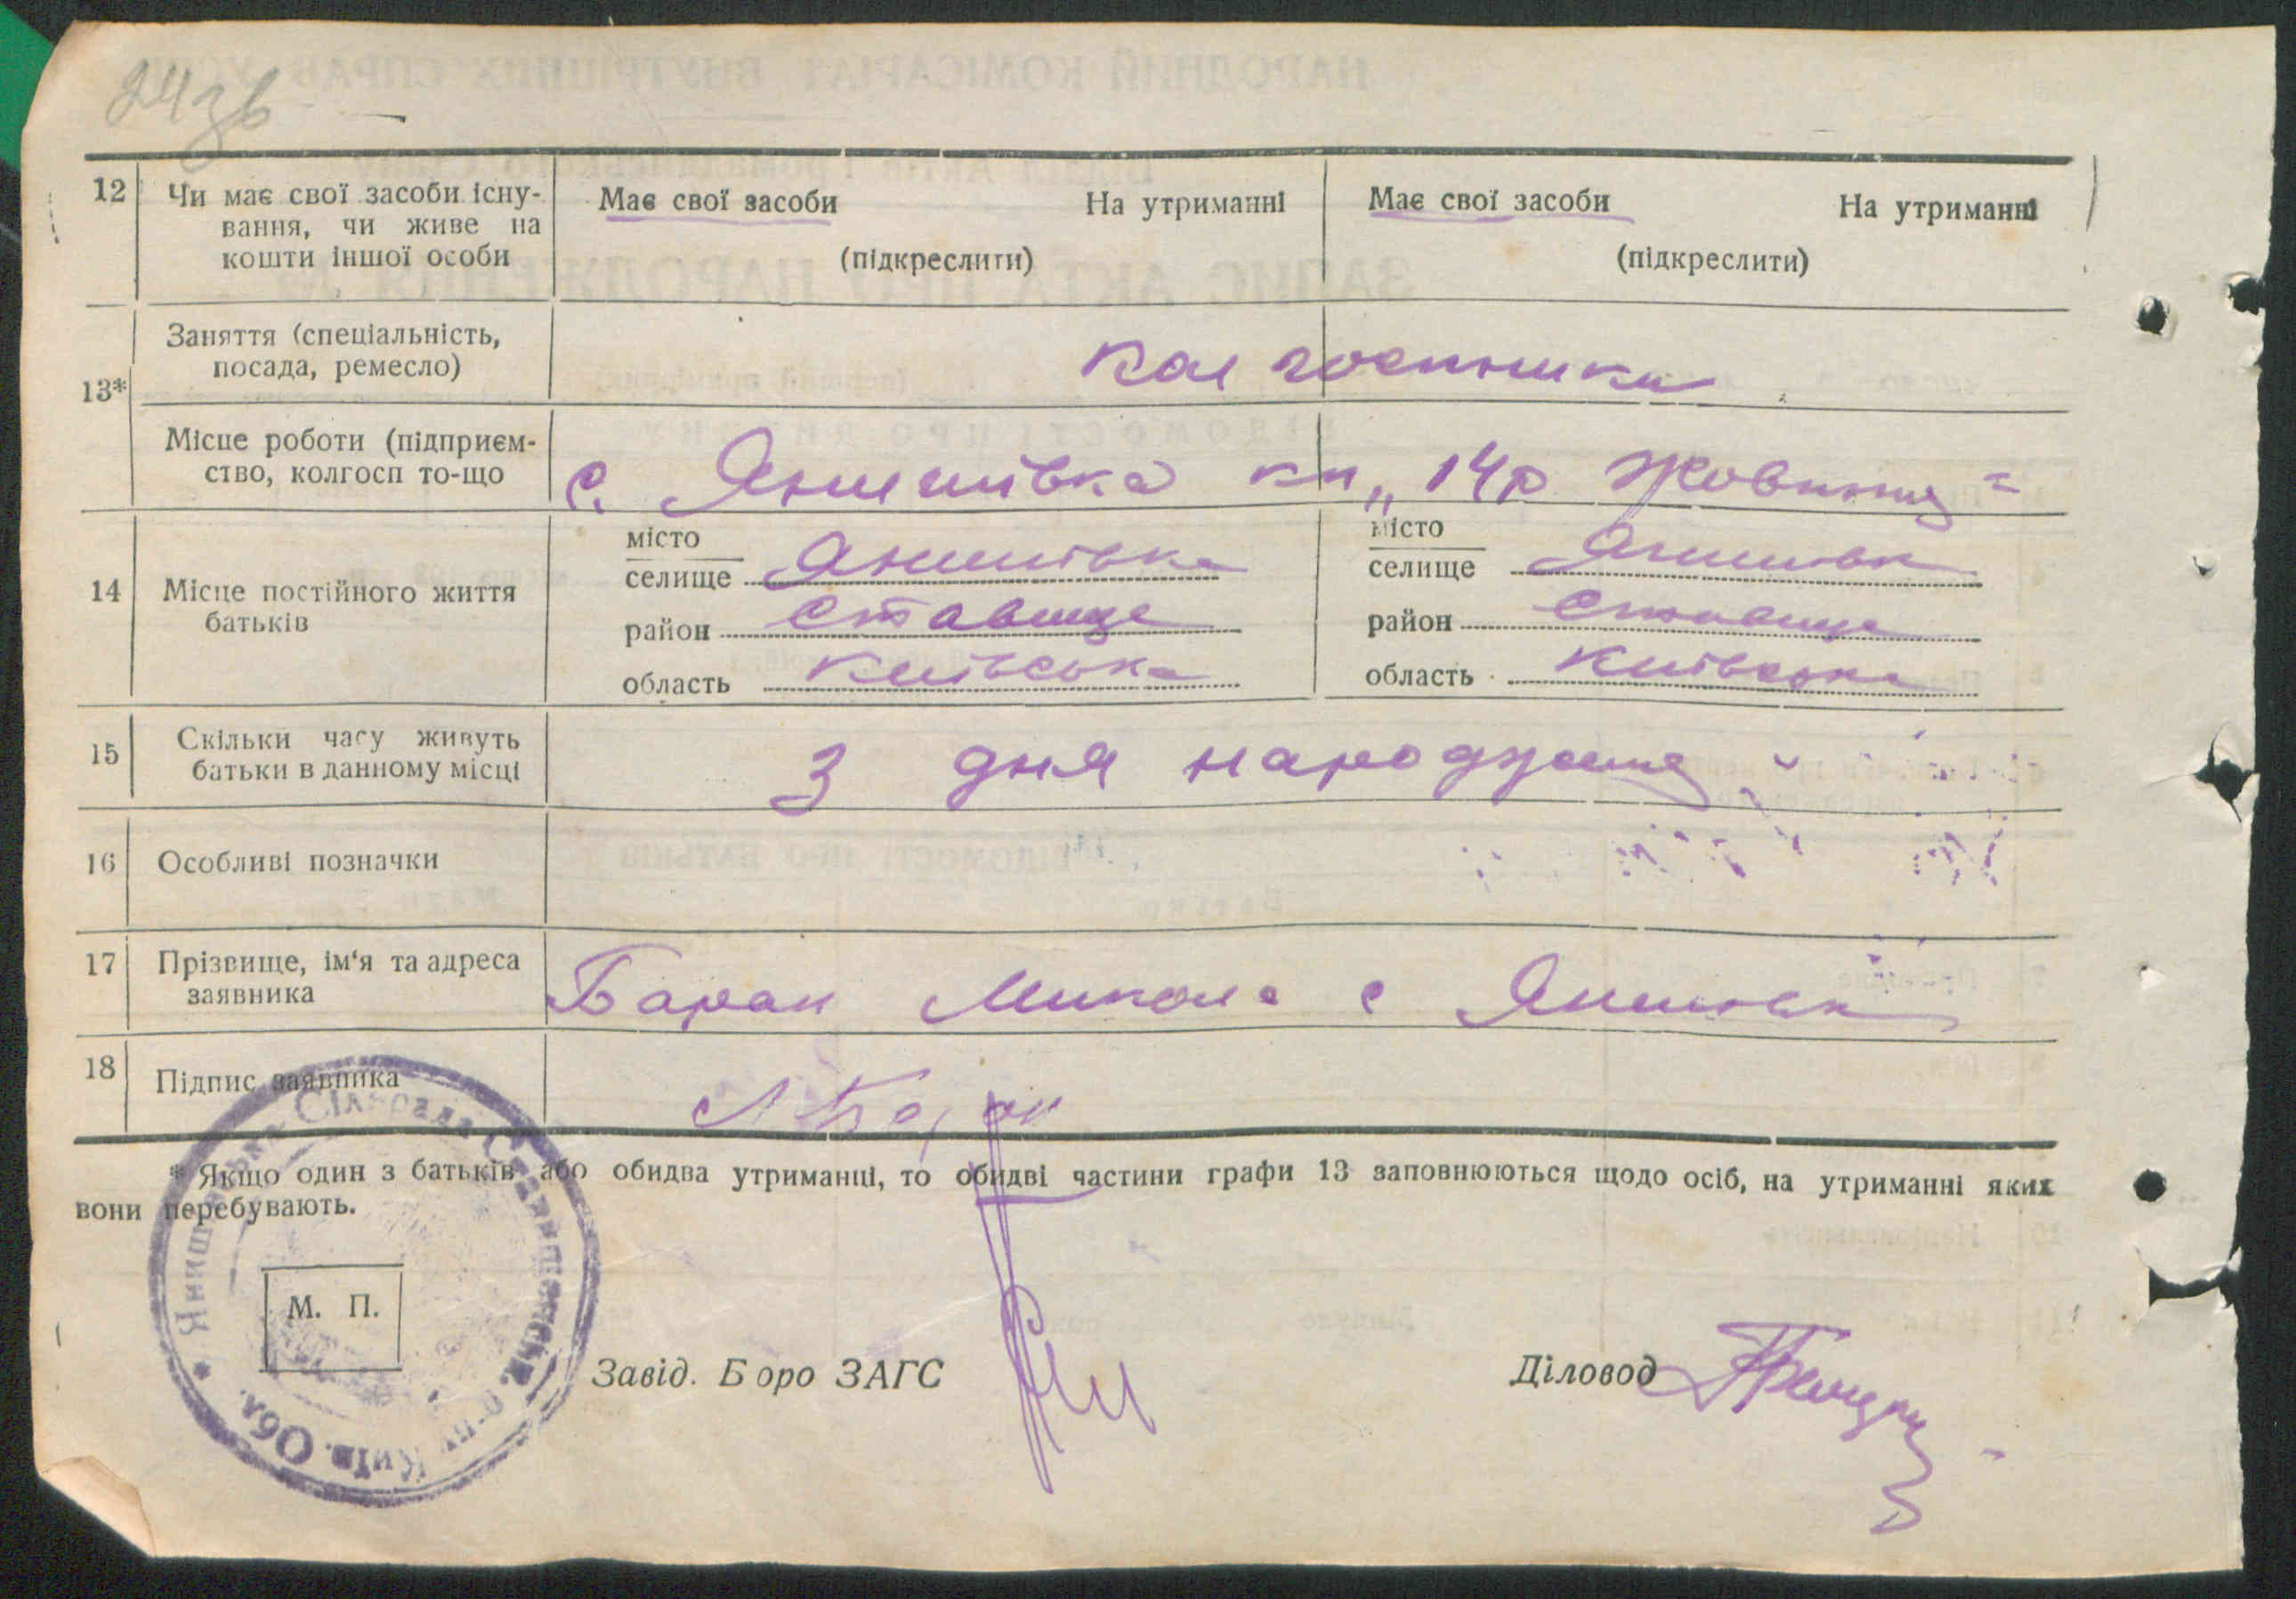 24 зв
12 Чи має свої засоби існу-
вання, чи живе на
кошти іншої особи
Має свої засоби На утриманні
(підкреслити)
Має свої засоби На утриманні
(підкреслити)
13*
Заняття (спеціальність,
посада, ремесло)
колгоспники
Місце роботи (підприєм-
ство, колгосп то-що
с. Янишівка кл „14р Жовтня"
14 Місце постійного життя
батьків
місто
селище Янишівка
район Ставище
область Київська
місто
селище Янишівк
район Ставище
область Київська
15 Скільки часу живуть
батьки в данному місці
З дня народження
16 Особливі позначки
17 Прізвище, ім'я та адреса
заявника
Баран Микола с Янишівк
18 Підпис заявника
М Баран
* Якщо один з батьків або обидва утриманці, то обидві частини графи 13 заповнюються щодо осіб, на утриманні яких
вони перебувають.
Янишівська Сільрада Ставищанськ. р-ну Київ. Обл.
М. П.
Завід. Бюро ЗАГС
Діловод